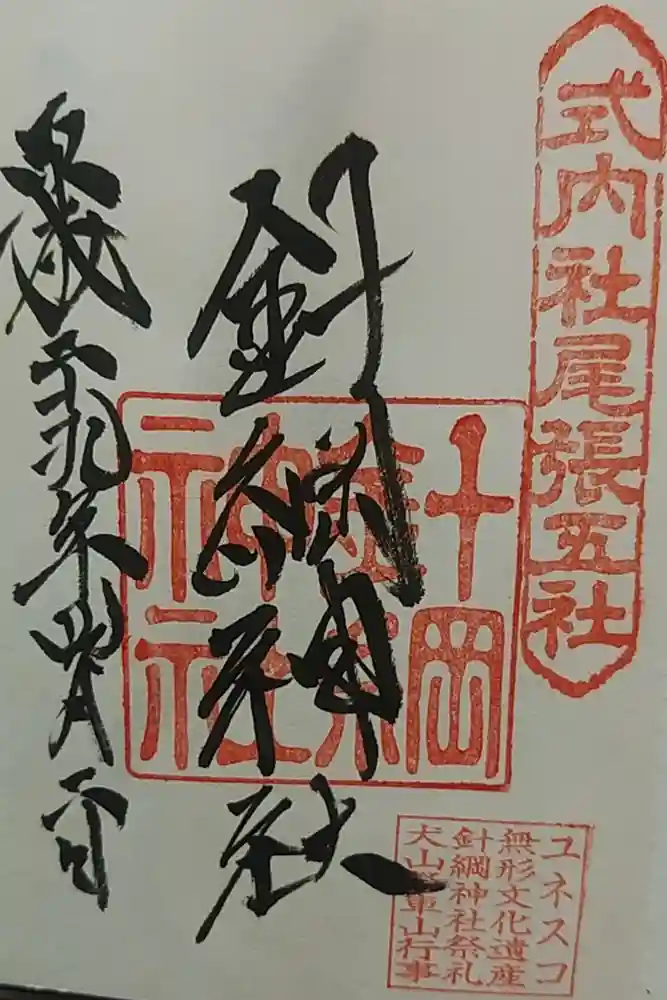 式内社尾張五社
針綱神社
針綱神社
ユネスコ
無形文化遺産
針綱神社祭礼
犬山祭車山行事